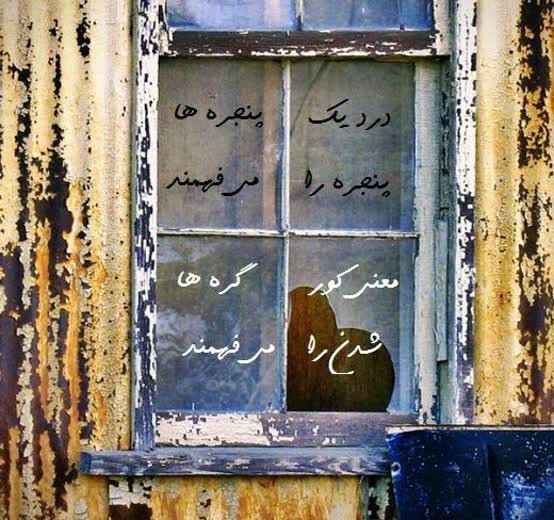 درد یک
پنجره را
پنجره ها
می‌فهمند
معنی کور
شدن را
گره ها
می‌فهمند